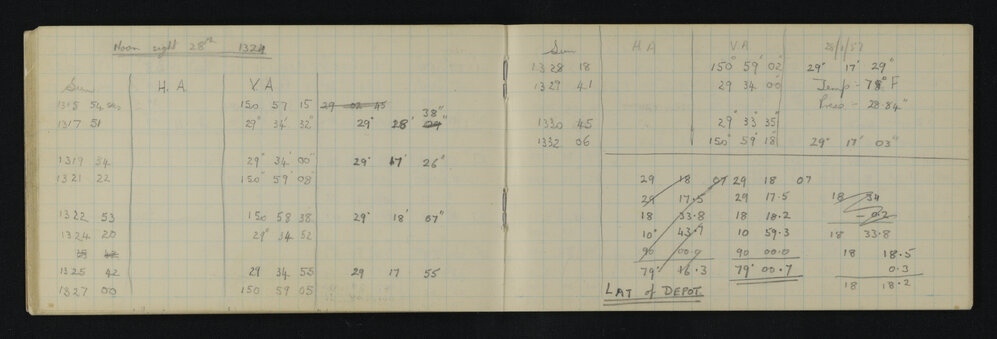 Noon sight 28th 1324
Sun H.A V.A
1315 54 150 57 15 29 02 45
38"
1317 51 29° 34' 32" 29° 28' 29"
1319 34 29° 34' 00" 29° 17' 26"
1321 22 150° 59' 08"
1322 53 150 58 38" 29° 18' 07"
1324 20 29° 34 52
38 42
1325 42 29 34 55 29 17 55
1327 00 150 59 05
Sun H A V A
1328 18 150° 59' 02" 29° 17' 29"
1329 41 29 34 00" Temp - 78° F
Press - 28.84"
1330 45 29° 33' 35"
1332 06 150° 59' 18" 29° 17' 03"
29 18 07 29 18 07
29 17.5 29 17.5 18 34
18 33.8 18 18.2 -0.2
10° 43.7 10 59.3 18 33.8
90 00.0 90 00.0 18 18.5
79° 16.3 79° 00.7 0.3
18 18.2
LAT of DEPOT